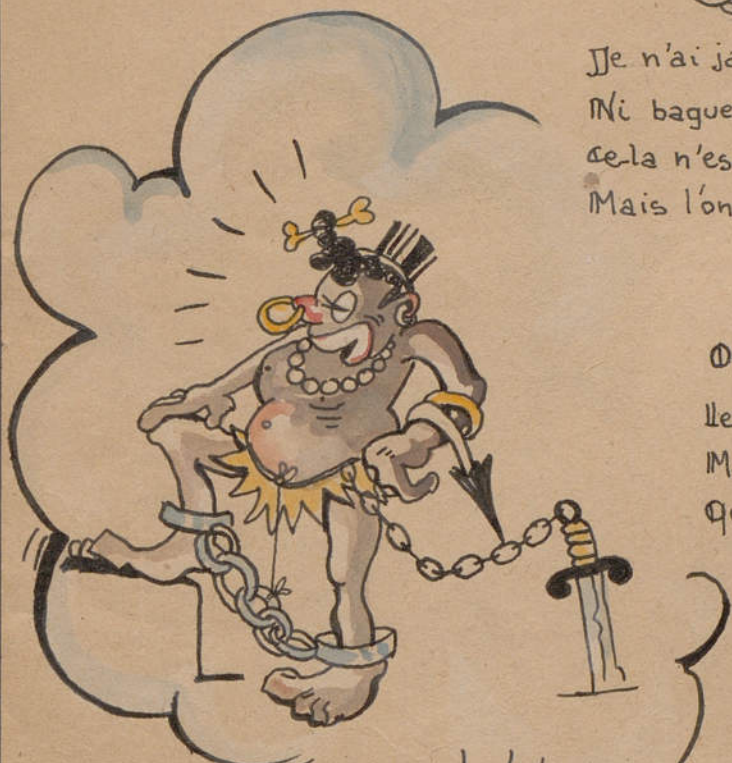 Je n'ai ja
Ni bague
Cela n'es
Mais l'on
O
Le
M
Qu